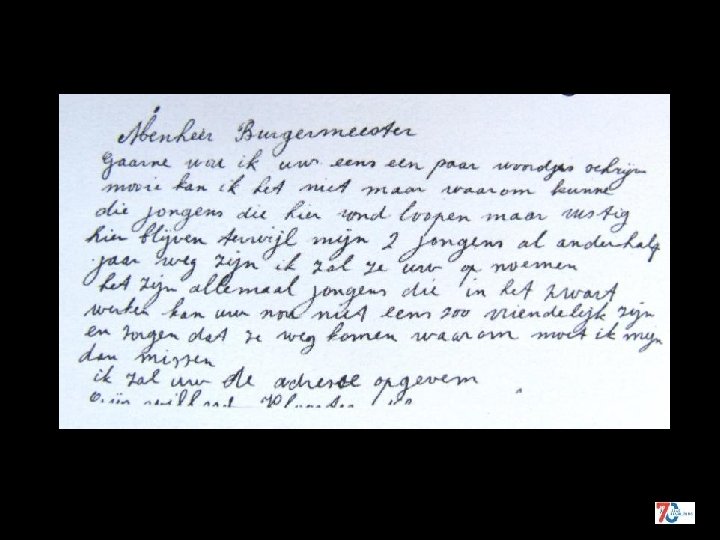 Menheer Burgermeester
Gaarne wou ik uw eens een paar woordjes schrijven
mooie kan ik het niet maar waarom kunne
die jongens die hier rond loopen maar rustig
hier blijven terwijl mijn 2 jongens al anderhalf
jaar weg zijn ik zal ze uw op noemen
het zijn allemaal jongens die in het zwart
werken kan uw nou niet eens zoo vriendelijk zijn
en zorgen dat ze weg komen waarom moet ik mijn
dan missen
ik zal uw de adresse opgevem
70